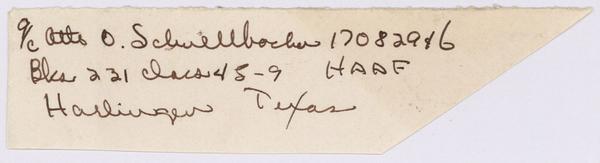 a/c Otto O. Schwellbacher 17082946
Bks 221 class 45-9 HAAF
Harlingen Texas